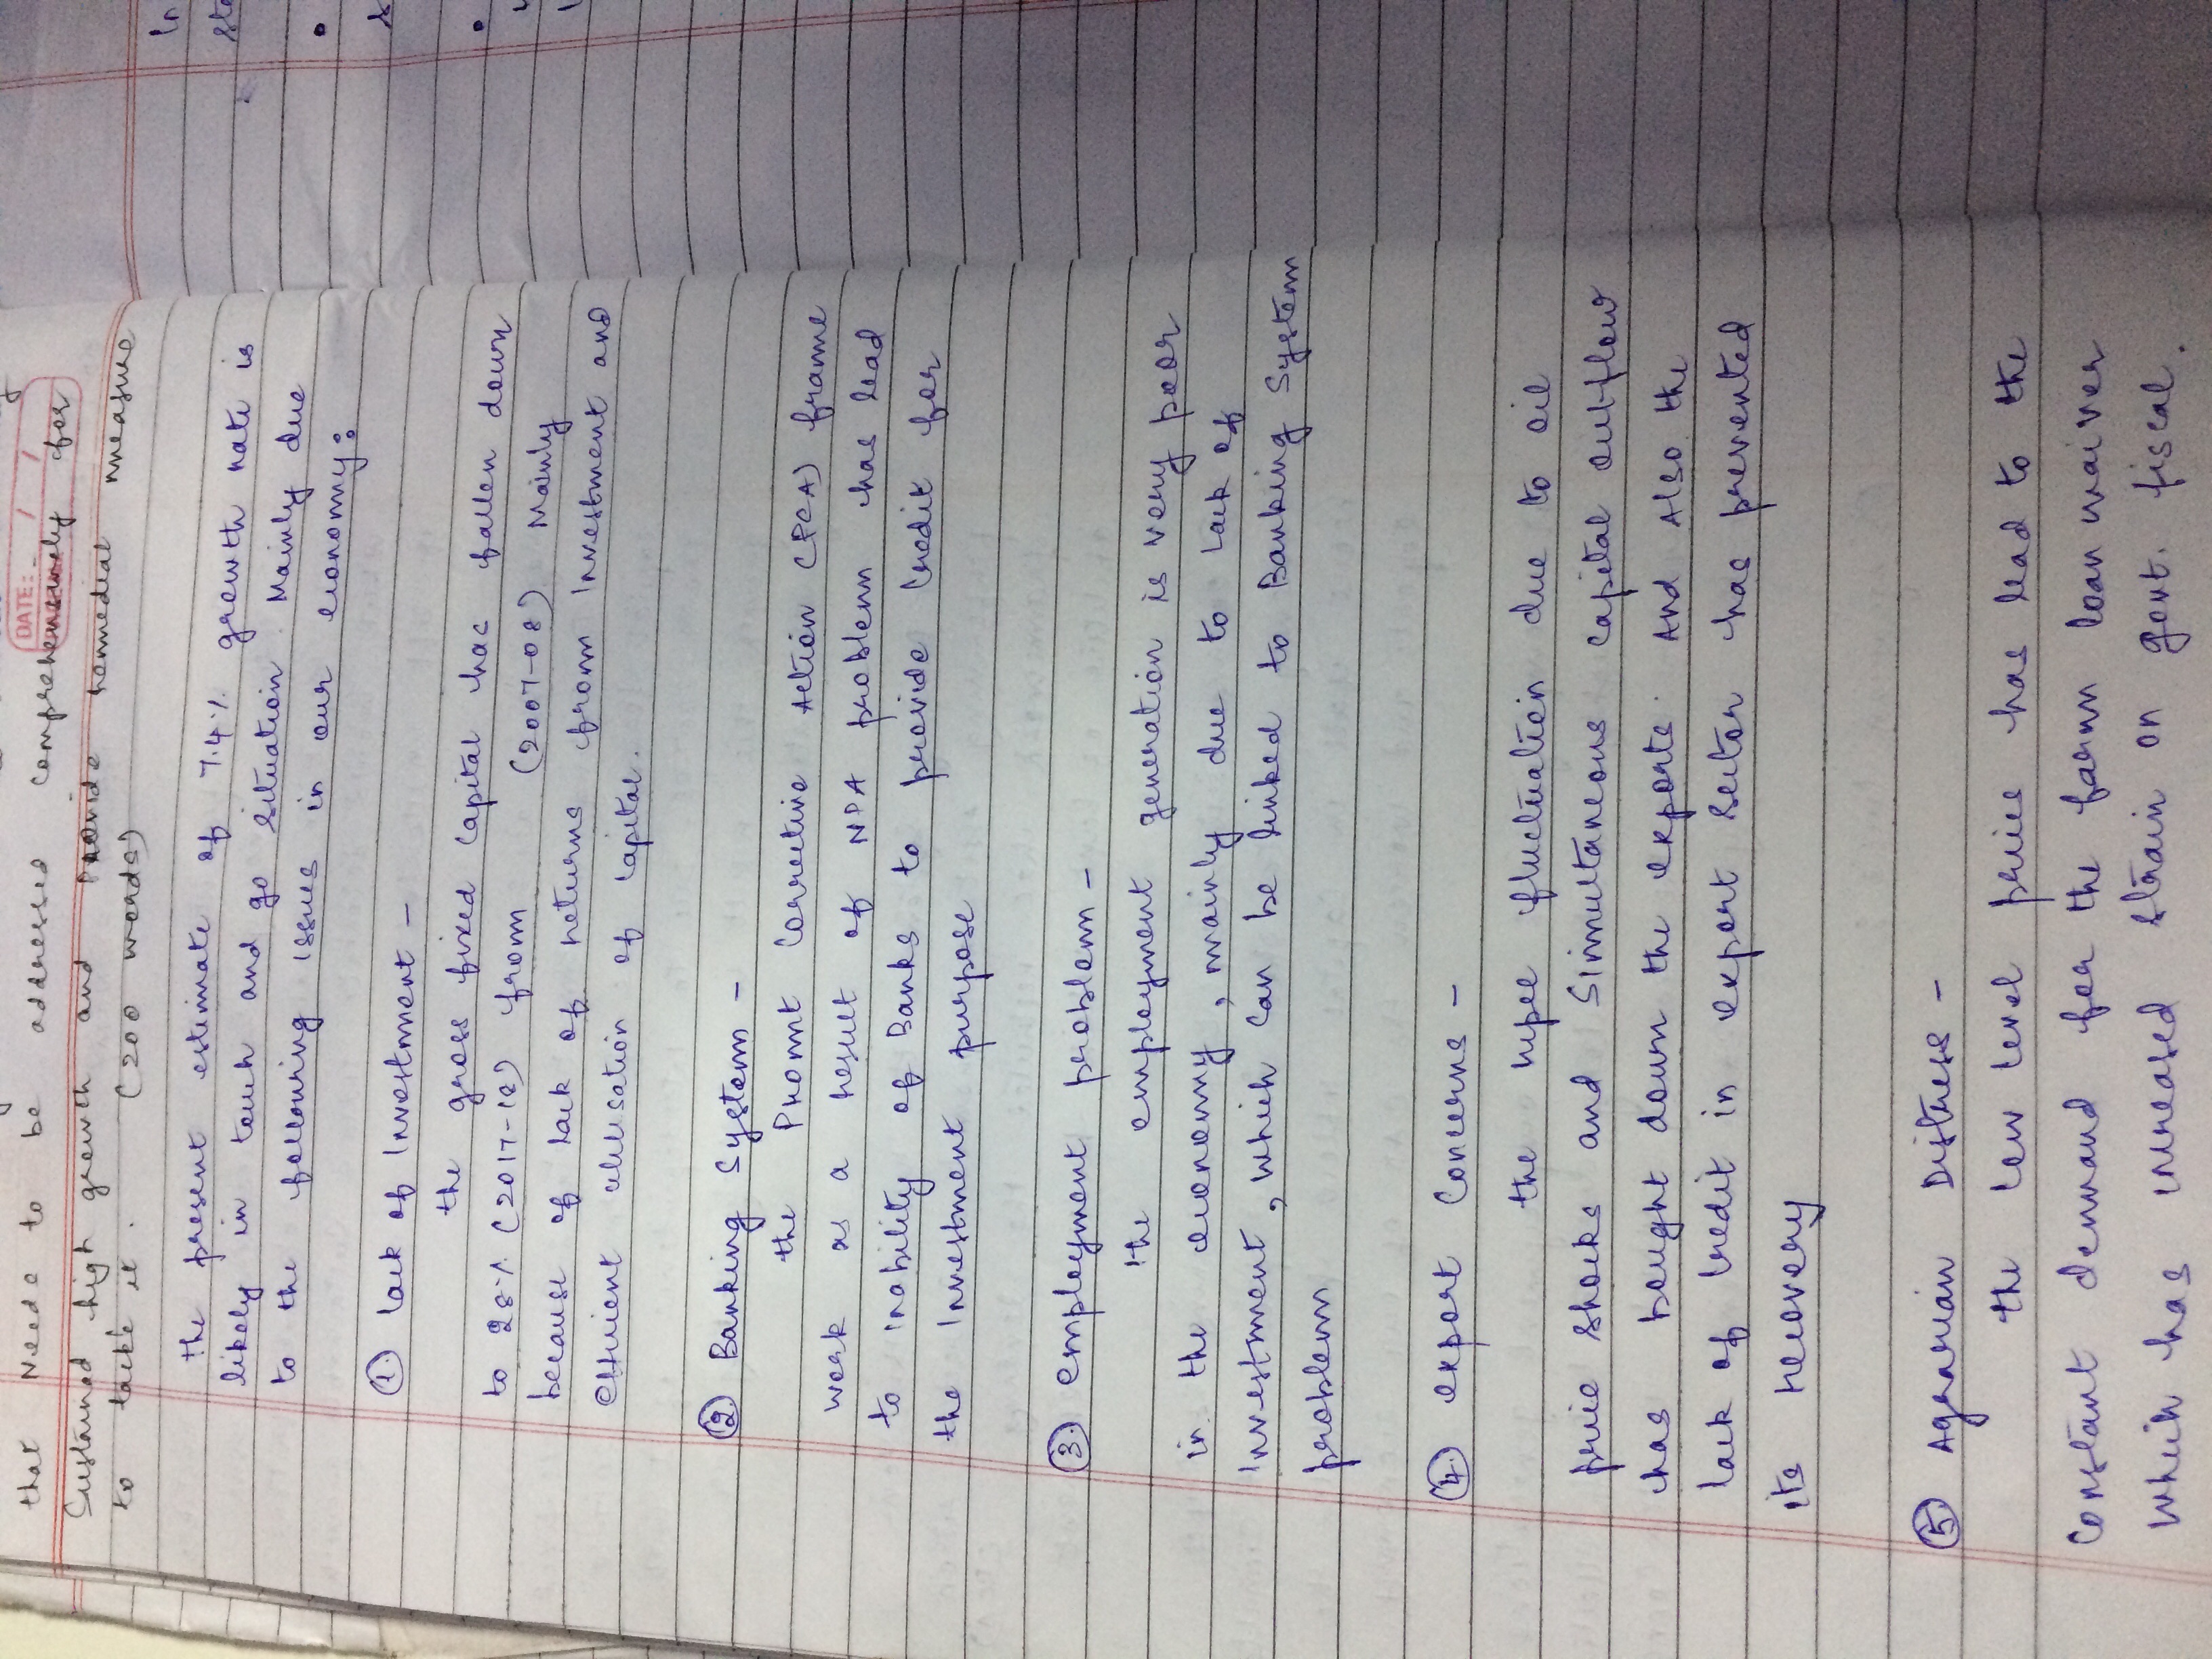 DATE:- / /
that Need to be addressed comprehensively for
Sustained high growth and Provide remedial measure
to tackle it. (200 words)
the present estimate of 7.4% growth rate is
likely in touch and go situation. Mainly due
to the following issues in our economy:
① lack of Investment -
the gross fixed Capital has fallen down
to 28% (2017-18) from (2007-08) Mainly
because of lack of returns from Investment and
efficient utilisation of Capital.
② Banking System -
the Promt Corrective Action (PCA) frame
work as a result of NPA problem has lead
to inability of Banks to provide Credit for
the Investment purpose
③ employment problem -
the employment generation is very poor
in the economy, mainly due to lack of
Investment, which can be linked to Banking System
problem
④ export Concerns -
the rupee fluctuation due to oil
price shocks and Simultaneous Capital outflow
has bought down the exports. And Also the
lack of Credit in export Sector has prevented
its recovery
⑤ Agrarian Distress -
the low level price has lead to the
Constant demand for the farm loan waiver
which has increased strain on govt. fiscal.